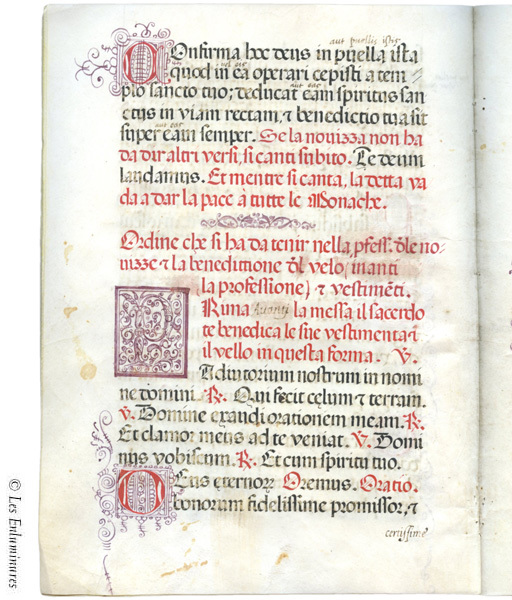 aut puellis istis
Confirma hoc deus in puella ista
vel eis
quod in ea operari cepisti a tem=
aut eas
plo sancto tuo; deducat eam spiritus san
ctus in viam rectam, & benedictio tua sit
aut eas
super eam semper. Se la novizza non ha
da dir altri versi, si canti subito. Te deum
laudamus. Et mentre si canta, la detta va
da a dar la pace à tutte le Monache.
Ordine che si ha da tenir nella pfess. dle no-
vizze & la benedittione dl velo (inanti
la professione) & vestimēti.
PRima avanti la messa il sacerdo
te benedica le sue vestimenta &
il vello in questa forma. V.
Adiutorium nostrum in nomi
ne domini. R. Qui fecit cęlum & terram.
V. Domine exaudi orationem meam. R.
Et clamor meus ad te veniat. V. Domi
nus vobiscum. R. Et cum spiritu tuo.
DEus ęternorum Oremus. Oratio.
bonorum fidelissime promissor, &
certissime
© Les Enluminures